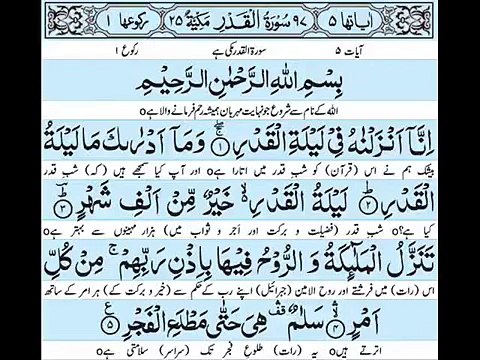 اٰیاتھا ۵ ۹۷ سُوْرَةُ الْقَدْرِ مَكِّيَّةٌ ۲۵ رکوعھا ۱
آیات ۵ سورۃ القدر مکی ہے رکوع ۱
بِسْمِ اللّٰهِ الرَّحْمٰنِ الرَّحِيْمِ
اللہ کے نام سے شروع جو نہایت مہربان ہمیشہ رحم فرمانے والا ہے o
اِنَّاۤ اَنْزَلْنٰهُ فِیْ لَیْلَةِ الْقَدْرِ ۚۖ۝۱ وَ مَاۤ اَدْرٰىكَ مَا لَیْلَةُ
بیشک ہم نے اس (قرآن) کو شبِ قدر میں اتارا ہے o اور آپ کیا سمجھے ہیں (کہ) شبِ قدر
الْقَدْرِ ؕ۝۲ لَیْلَةُ الْقَدْرِ ۙ۬ خَیْرٌ مِّنْ اَلْفِ شَهْرٍ ؕؔ۝۳
کیا ہے؟ o شبِ قدر (فضیلت و برکت اور اَجر و ثواب میں) ہزار مہینوں سے بہتر ہے o
تَنَزَّلُ الْمَلٰٓىِٕكَةُ وَ الرُّوْحُ فِیْهَا بِاِذْنِ رَبِّهِمْ ۚ مِنْ كُلِّ
اس (رات) میں فرشتے اور روح الامین (جبرائیل) اپنے رب کے حکم سے (خیر و برکت کے) ہر امر کے ساتھ
اَمْرٍ ۙۛ۝۴ سَلٰمٌ ۛ۫ هِیَ حَتّٰى مَطْلَعِ الْفَجْرِ ۠۝۵
اترتے ہیں o یہ (رات) طلوعِ فجر تک (سراسر) سلامتی ہے o